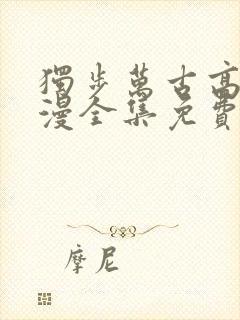 獨步萬古高
漫全集免費
摩尼